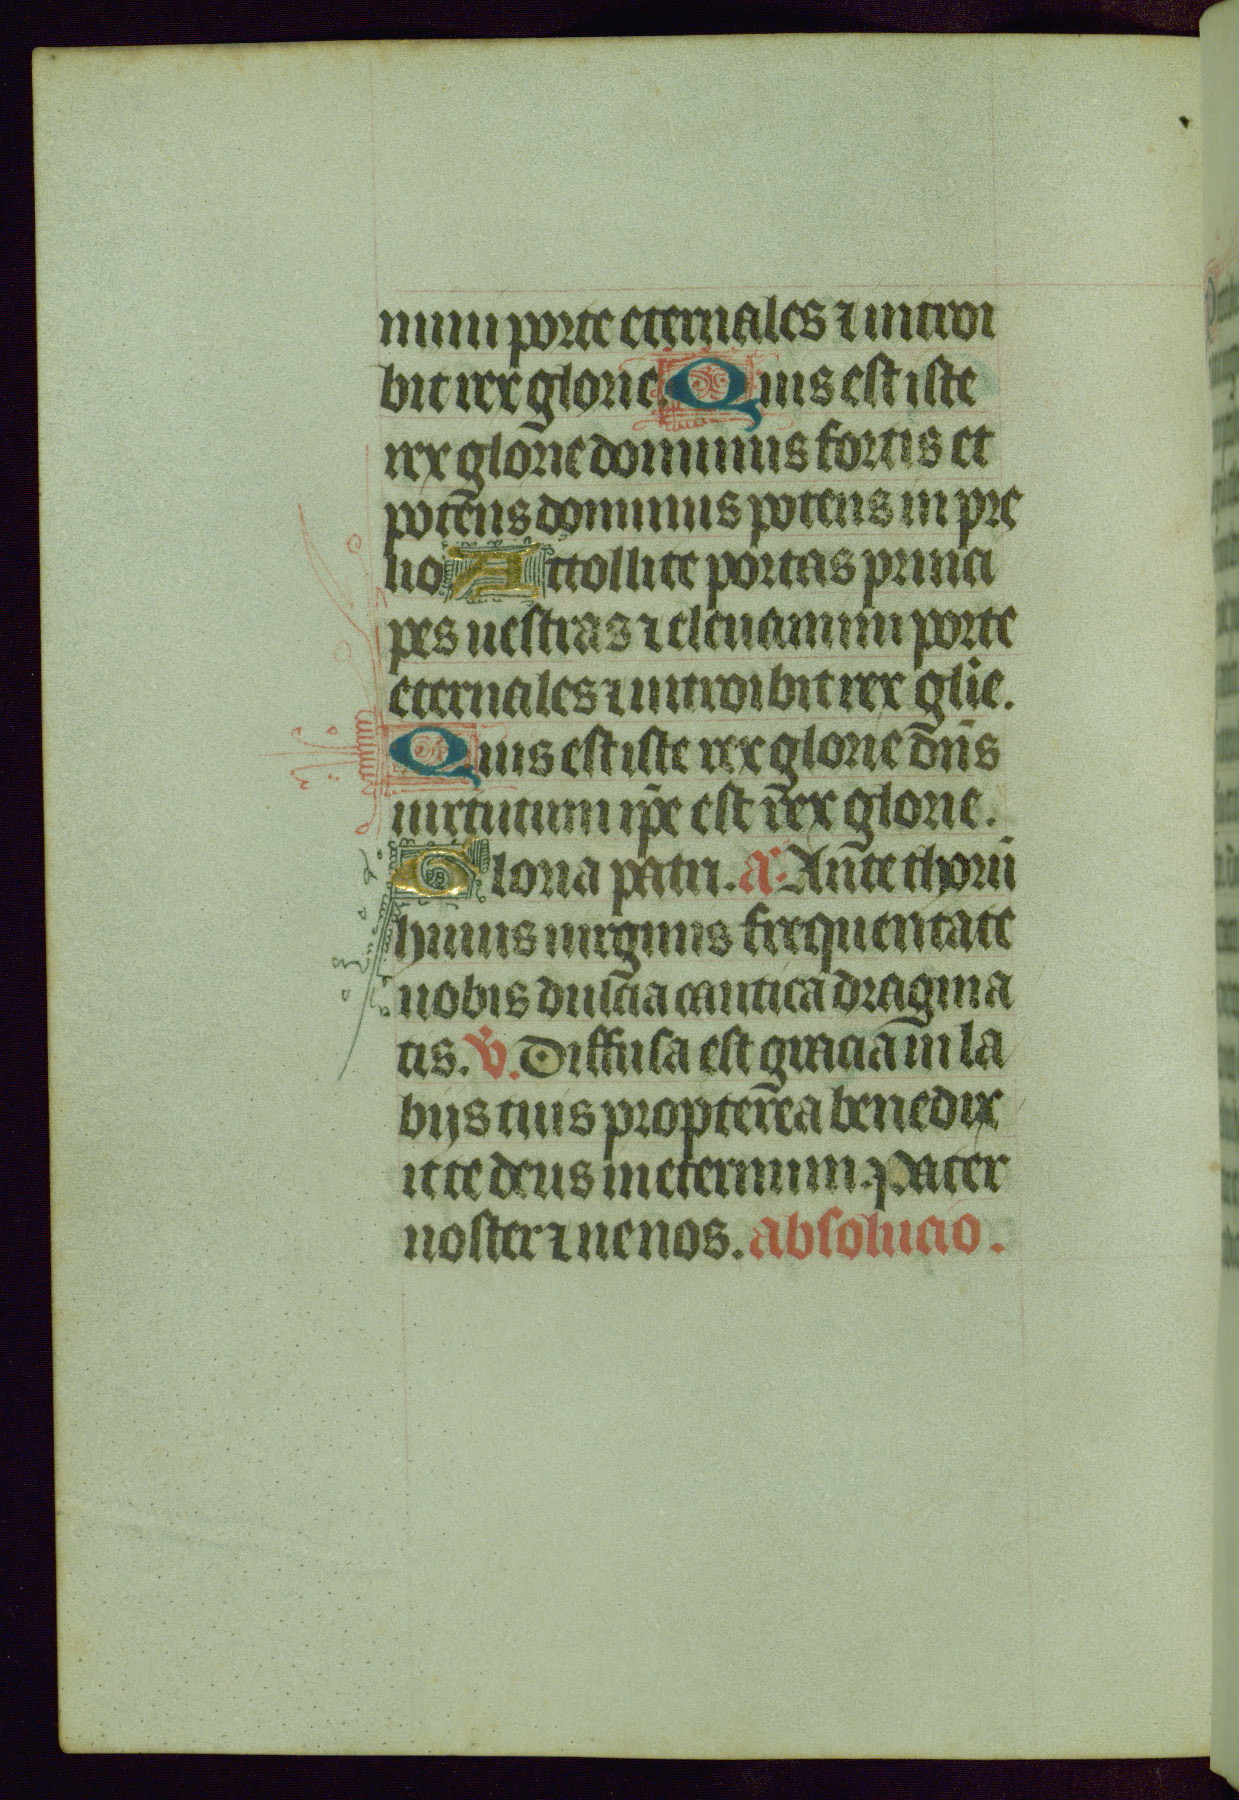 mini porte eternales ⁊ introi
bit rex glorie. Quis est iste
rex glorie dominus fortis et
potens dominus potens in pre
lio Attollite portas princi
pes uestras ⁊ eleuamini porte
eternales ⁊ introibit rex gl̄ie.
Quis est iste rex glorie dn̄s
uirtutum ip̄e est rex glorie.
Gloria patri. a. Ante thorū
huius uirginis frequentate
nobis dulcia cantica dragma
tis. v. Diffusa est gracia in la
bijs tuis propterea benedix
it te deus in eternum. Pater
noster ⁊ ne nos. absolucio.